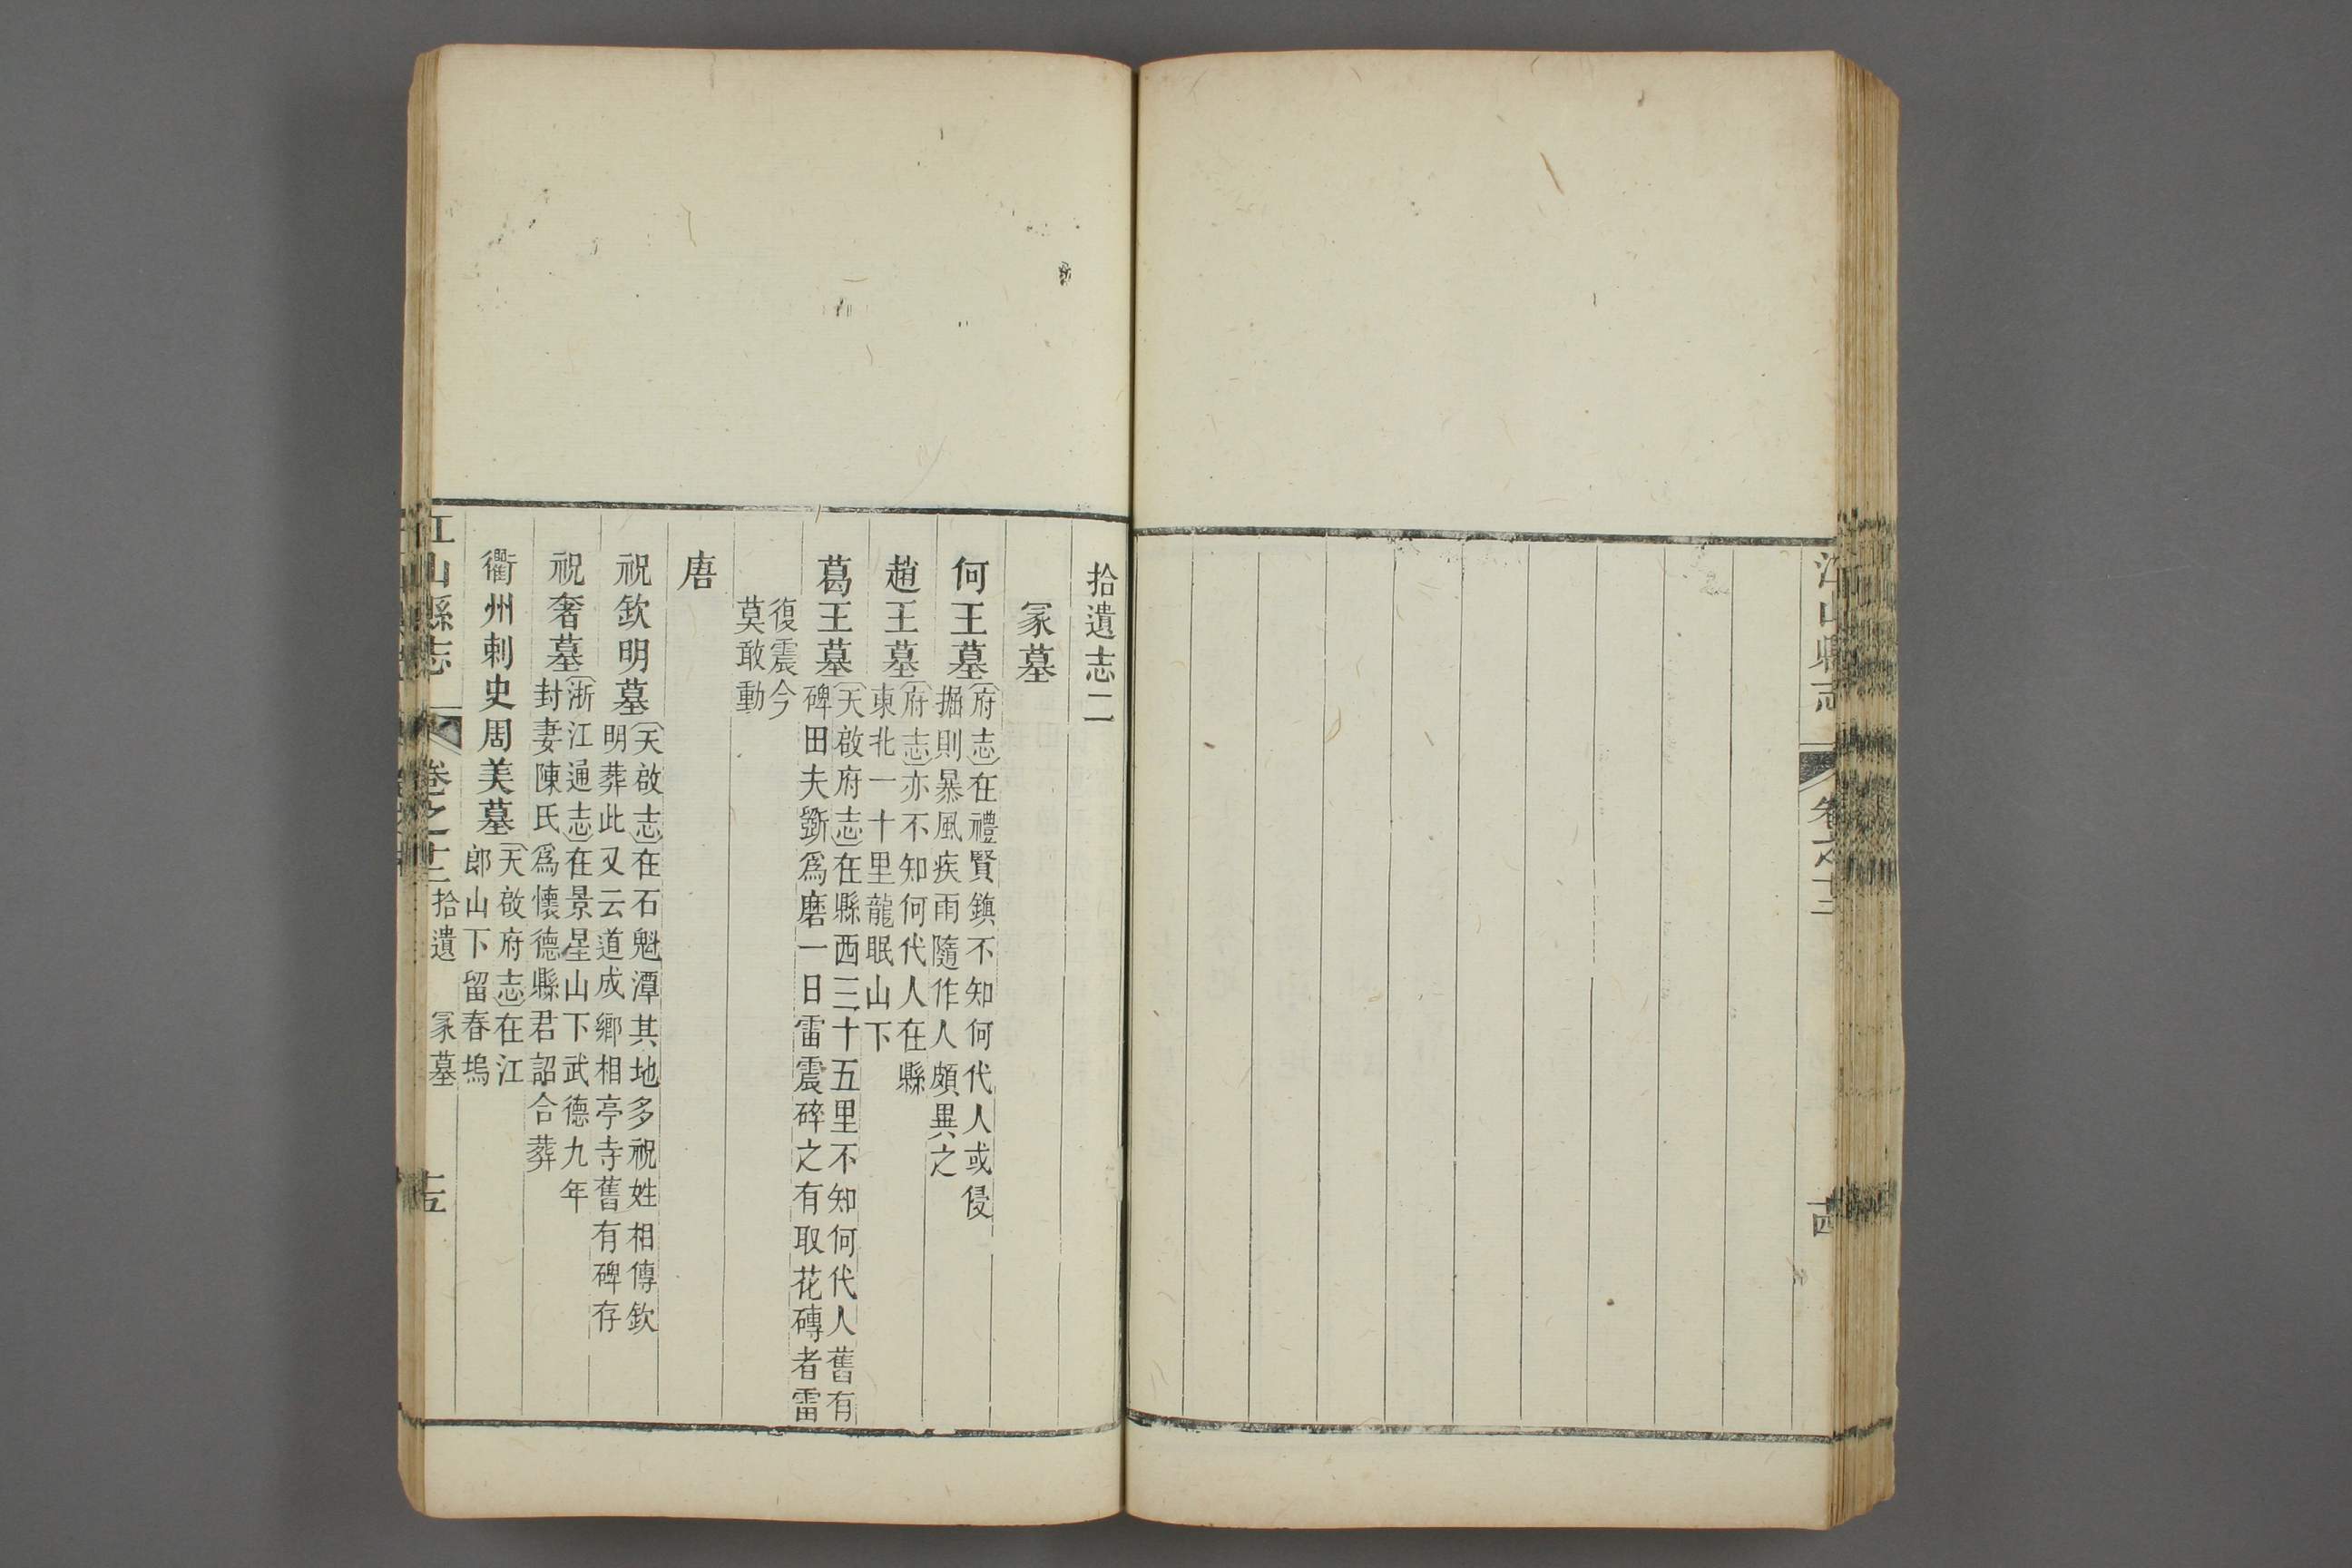 江山縣志 卷之十二 十四
拾遺志二
冢墓
何王墓
〔府志〕在禮賢鎮不知何代人或侵
掘則暴風疾雨隨作人頗異之
趙王墓
〔府志〕亦不知何代人在縣
東北一十里龍眠山下
葛王墓
〔天啟府志〕在縣西三十五里不知何代人舊有
碑田夫斲爲磨一日雷震碎之有取花磚者雷
復震今
莫敢動
唐
祝欽明墓
〔天啟志〕在石魁潭其地多祝姓相傳欽
明葬此又云道成鄉相亭寺舊有碑存
祝奢墓
〔浙江通志〕在景星山下武德九年
封妻陳氏爲懷德縣君詔合葬
衢州刺史周美墓
〔天啟府志〕在江
郎山下留春塢
江山縣志 卷之十二 拾遺 冢墓 十五